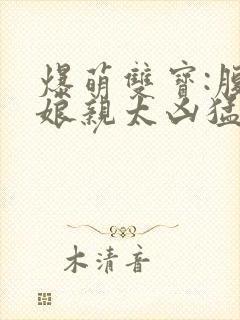 爆萌雙寶:腹
娘親太凶猛
木清音